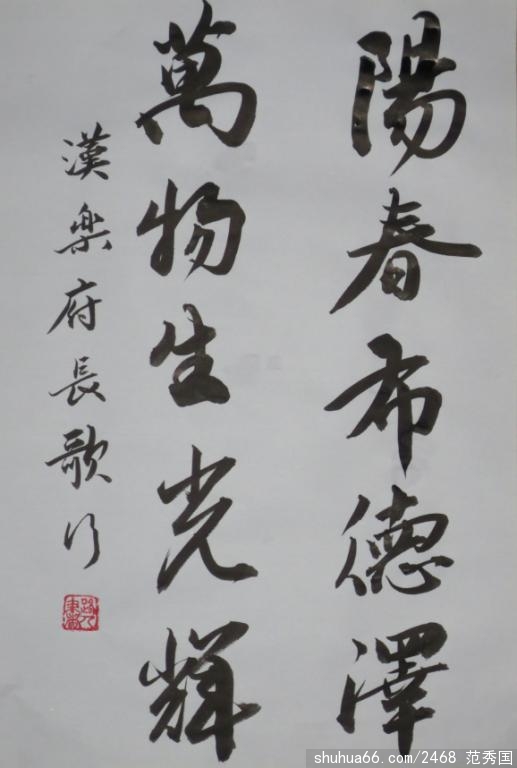 陽春布德澤
萬物生光輝
漢樂府長歌行
shuhua66.com/2468 范秀国